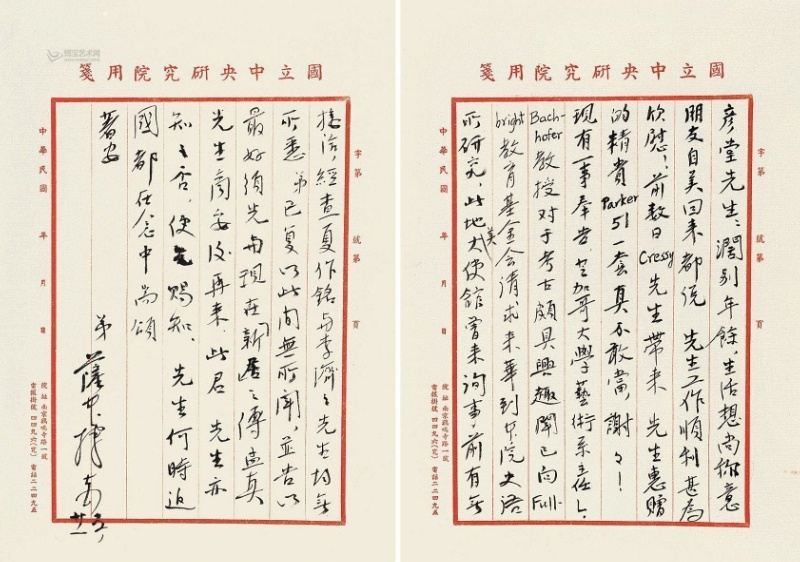 國立中央研究院用箋
字第 號第 頁
彥堂先生:濶别年餘,生活想尚称意
朋友自美回来都說 先生工作順利甚為
欣慰!前数日Cressy先生帶来 先生惠贈
的精貴Parker 51一套真不敢當,謝々!
現有一事奉告,芝加哥大學藝術系主任L.
Bach-hofer教授对于考古頗具興趣聞已向Full-
bright教育基金会請求来華到本院史語
所研究,此地美大使館曾来詢事前有無
中華民國 年 月 日
院址 南京鷄鳴寺路一號
電報掛號 四四九六(究) 電話二二四九五
國立中央研究院用箋
字第 號第 頁
接洽,經查夏作銘与李濟之先生均無
所悉 弟已复以此間無所聞,並告以
最好須先与現在新居之傅孟真
先生商妥後再来,此君 先生亦
知之否,便乞賜知,先生何時返
國都在念中尚頌
著安
弟 薩本棟
中華民國 年 月 日
院址 南京鷄鳴寺路一號
電報掛號 四四九六(究) 電話二二四九五